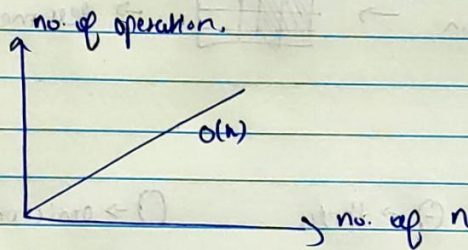 no. of operation.
O(n)
no. of n